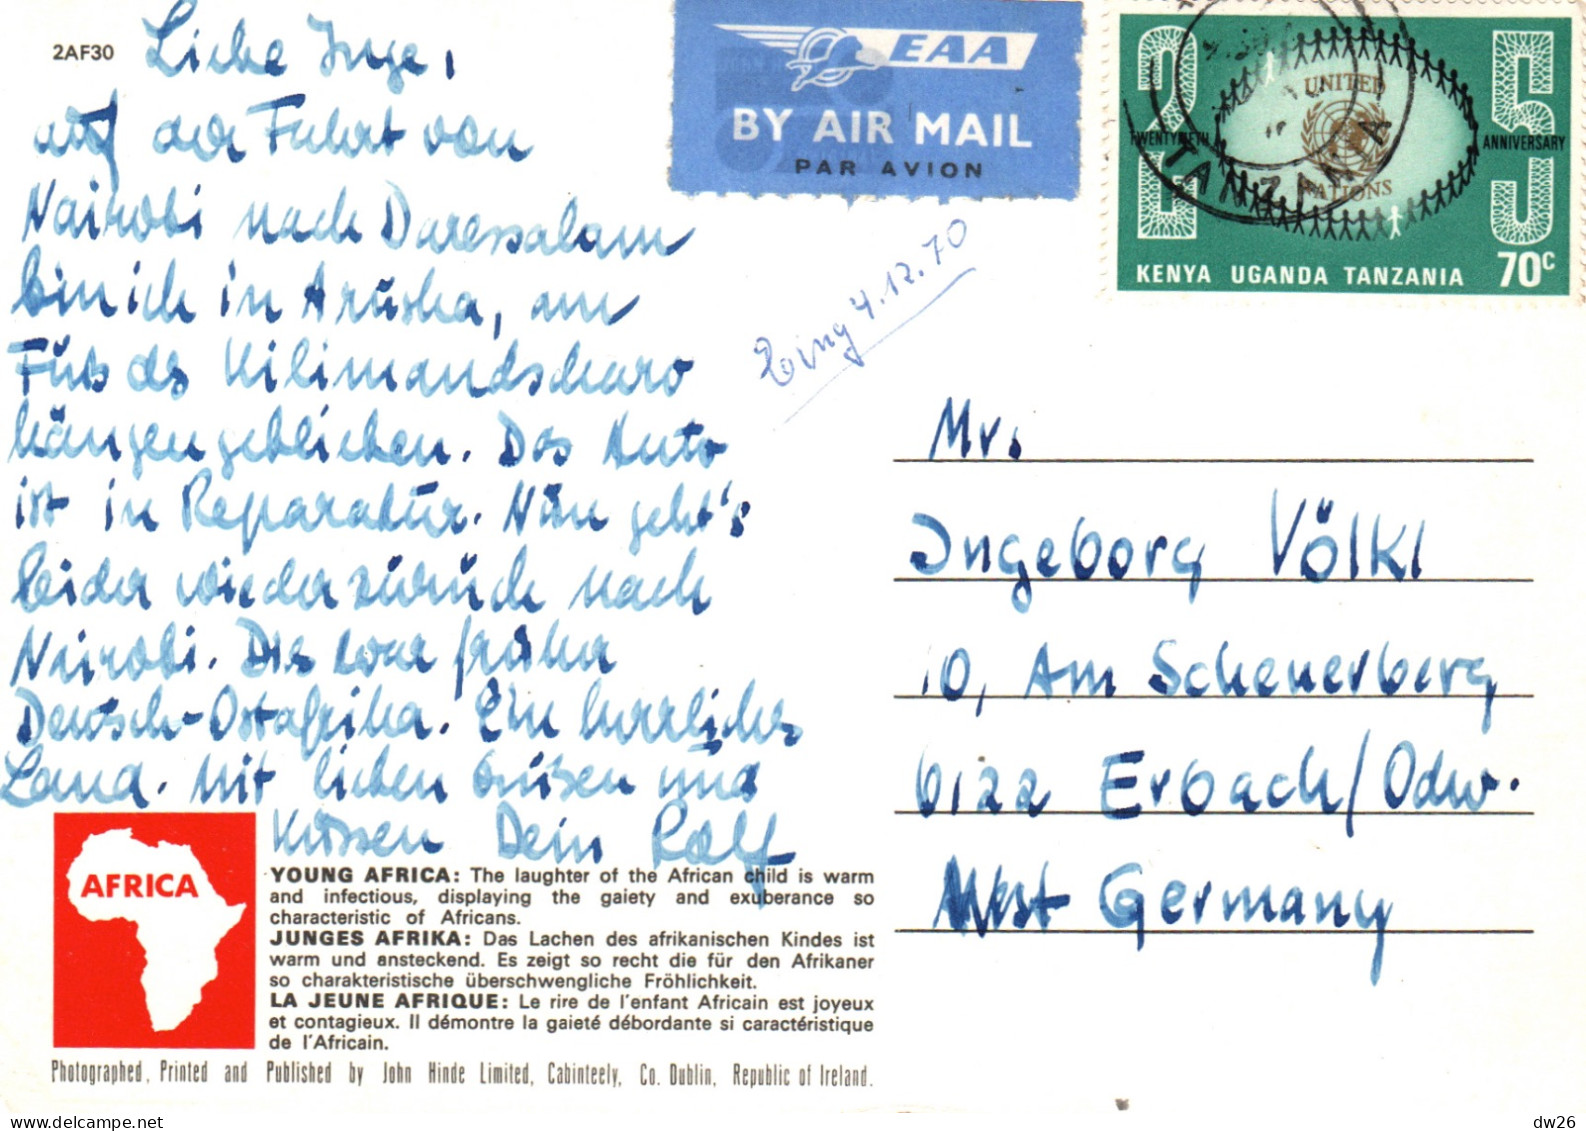 2AF30
Liebe Inge,
auf der Fahrt von
Nairobi nach Daressalam
bin ich in Arusha, am
Fuß des Kilimandscharo
hängen geblieben. Das Auto
ist in Reparatur. Nun geht's
leider wieder zurück nach
Nairobi. Dies war früher
Deutsch-Ostafrika. Ein herrliches
Land. Mit lieben Grüßen und
Küssen Dein Ralf
EAA
BY AIR MAIL
PAR AVION
Eing 4.12.70
UNITED
NATIONS
TWENTYFIFTH
ANNIVERSARY
25
TANZANIA
KENYA UGANDA TANZANIA 70c
Mr.
Ingeborg Völkl
10, Am Scheuerberg
6122 Erbach/Odw.
West Germany
AFRICA
YOUNG AFRICA: The laughter of the African child is warm
and infectious, displaying the gaiety and exuberance so
characteristic of Africans.
JUNGES AFRIKA: Das Lachen des afrikanischen Kindes ist
warm und ansteckend. Es zeigt so recht die für den Afrikaner
so charakteristische überschwengliche Fröhlichkeit.
LA JEUNE AFRIQUE: Le rire de l'enfant Africain est joyeux
et contagieux. Il démontre la gaieté débordante si caractéristique
de l'Africain.
Photographed, Printed and Published by John Hinde Limited, Cabinteely, Co. Dublin, Republic of Ireland.
dw26